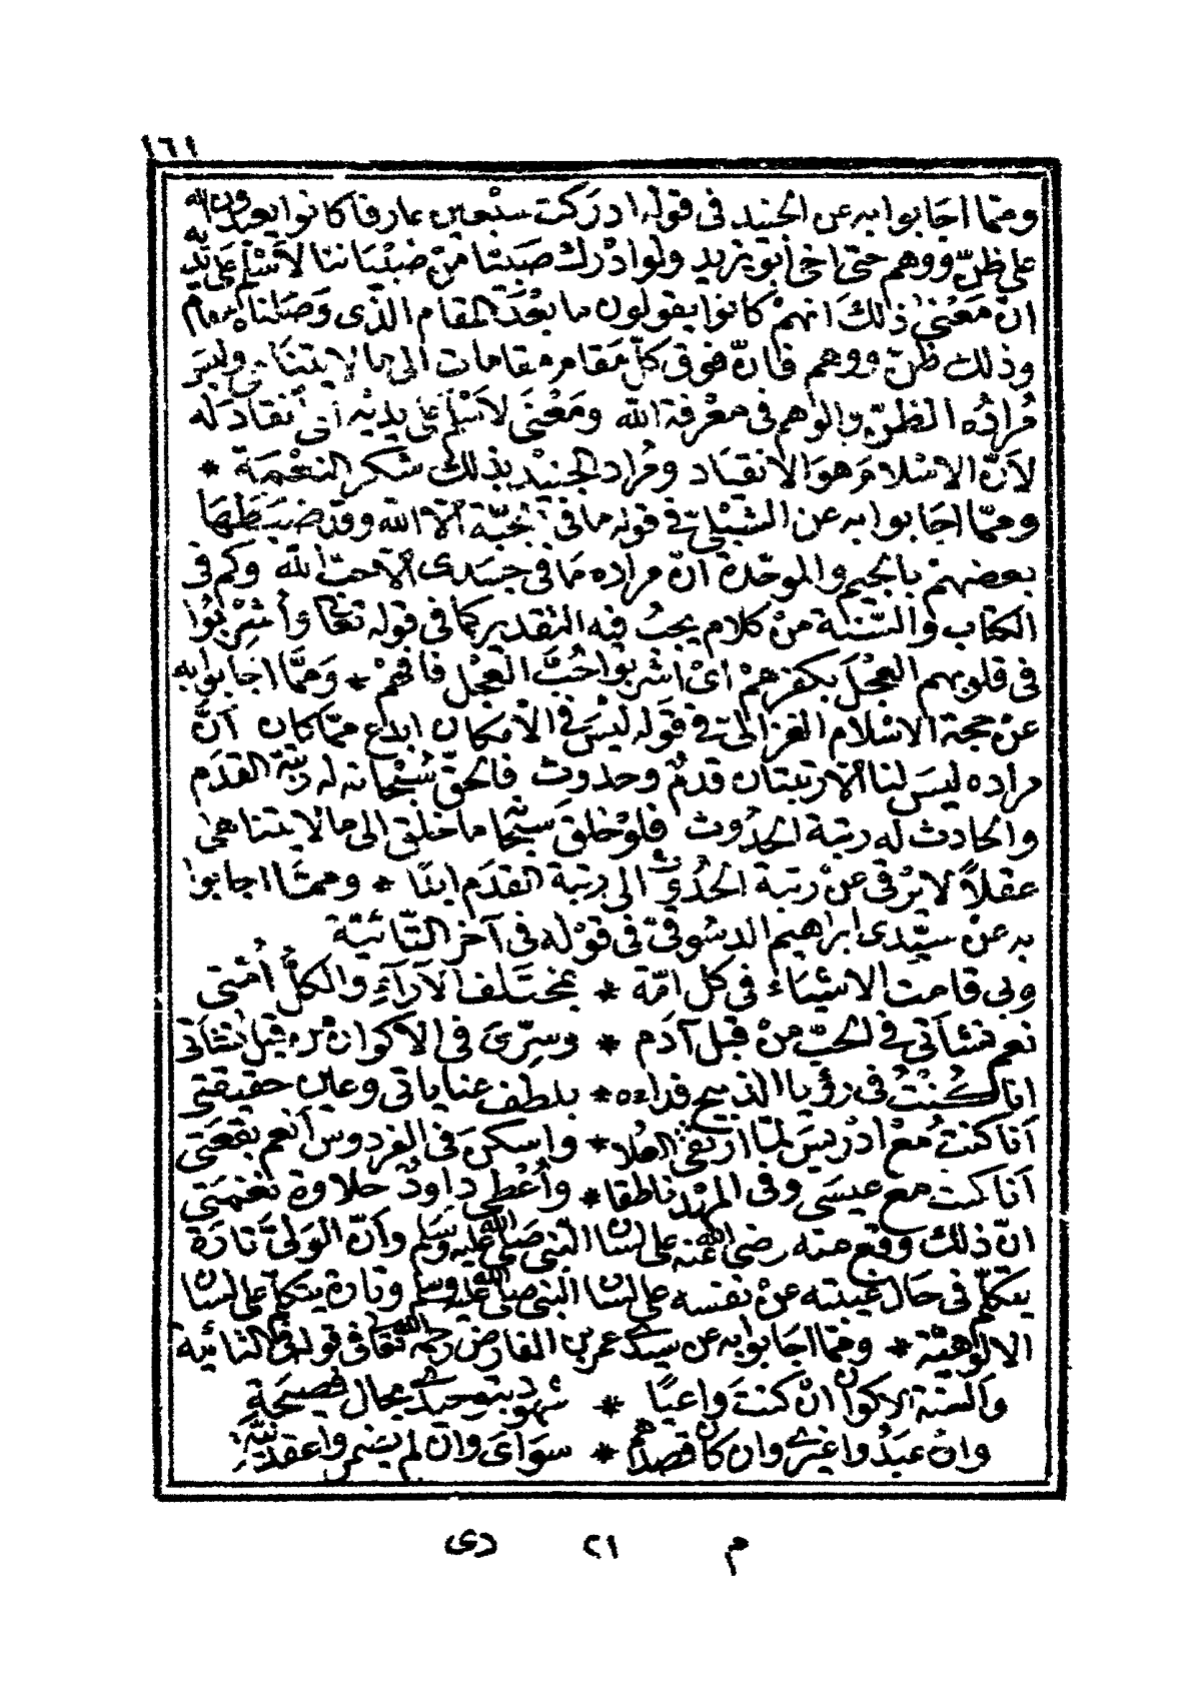 ١٦١
ومما اجابوا به عن الجنيد فى قوله ادركت سبعين عارفا كانوا يعبدون الله
على ظنّ ووهم حتى اخى أبو يزيد ولو ادْرك صَبيّا منْ صبْيَاننا لاَسْلم عَلى يديه
انّ مَعْنى ذلكَ انهمْ كانوا يقولون ما بعْدَ المقام الذى وَصَلناه مقام
وذلك ظنّ ووهم فانّ فوق كلّ مَقام مقامات الى ما لا يتناهى وليسَ
مُرادُه الظنّ والوهم فى معْرفة الله ومَعْنى لاَسْلم على يديْه أى انقاد لَه
لاَنّ الاسْلام هوَ الانقيَاد ومُراد الجنيْد بذلك شكر النعْمَة *
وممّا اجَابوا به عن الشبْلىّ فى قوله ما فى الجبّة الاّ الله وقد ضبَطهَا
بعضهمْ بالجيم والموحّدة انّ مراده مَا فى جسَدى الاّ حبّ الله وكم فى
الكتاب والسّنة منْ كلام يجبُ فيه التقدير كما فى قوله تعَالى وأُشْرِبُوا
فى قلوبهم العجْلَ بكفرهمْ اىْ اشربوا حُبَّ العجْل فافهمْ * وَممَّا اجابوا به
عنْ حجة الاسْلام الغزالىّ فى قوَله ليْسَ فى الاْمكان ابدَع ممّا كان أنَّ
مراده ليسَ لنا الاّ رتبتان قدمٌ وحدوث فالحقّ سُبْحانه له رتبَة القدَم
والحادث له رتبة الحُدُوث فلوْ خلقَ سبْحانه ما خلق الى ما لا يتناهىٰ
عقلاً لا يرْقى عنْ رتبة الحُدُوث الى رتبة القدَم ابدًا * وممّا اجابوا
به عنْ سيّدى ابراهيم الدسُوقىّ فى قوْله فى آخر التّائيّة
وبى قامت الاشيَاءُ فى كل امّة * بمختَلف الآرآءِ والكلُّ أُمّتى
نعم نشأتى فى الحبّ منْ قبل آدَم * وسِرّى فى الاَكوان منْ قبل نشأتى
انا كُنْتُ فى رؤيا الذبيح فداءه * بلطف عناياتى وعين حقيقتى
اَنا كنتُ معْ ادْريسَ لمّا ارْتقى العُلا * واسكنَ فى الفردوس اَنعم بقعَتى
اَنا كنت مع عيسَى وفى المهْد ناطقا * واُعْطى داودُ حلاوة نغمَتى
انّ ذلك وقع منه رضى الله عنْه على لسَان النبى صَلى الله عليه وسَلم وأنّ الوَلىَّ تارَة
يتكلّم فى حَال غيبته عنْ نفسه على لسَان النبى صلى الله عليه وسلم وتارة يتكلم على لسَان
الالوُهيّة * وممّا اجَابوا به عن سيّدى عمر بن الفارض رحمه الله تعَالى فى قوله فى التائيّة
وَالسنة الاكوان انْ كنتَ واعيًا * شهود بتوحيدى بحال فصيحَةِ
وانْ عبَدُوا غيْرى وان كان قصدهم * سوَاىَ وانْ لم يضمروا عقد نيّة
م ٢١ دى